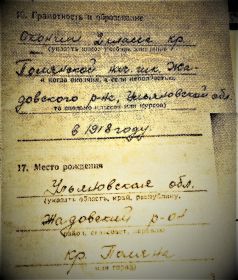 16. Грамотность и образование
Окончил 2 класса кр.
(указать какое учебное заведение
Полянской нач. шк. Жа-
и когда окончил, а если не полностью,
довского р-на Ульяновской обл.
то сколько классов или курсов)
в 1918 году.
17. Место рождения
Ульяновская обл.
(указать область, край, республику,
Жадовский р-он
район, сельсовет, деревню
кр. Поляна
или город)